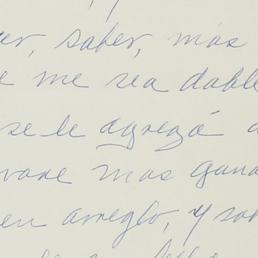 er, saber, mas
e me sea dable
se le agregá a
vare mas gana
en arreglo, y